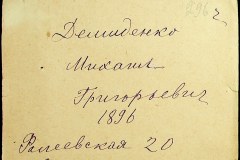 896 г
Демиденко
Михаил
Григорьевич
1896
Рылеевская 20